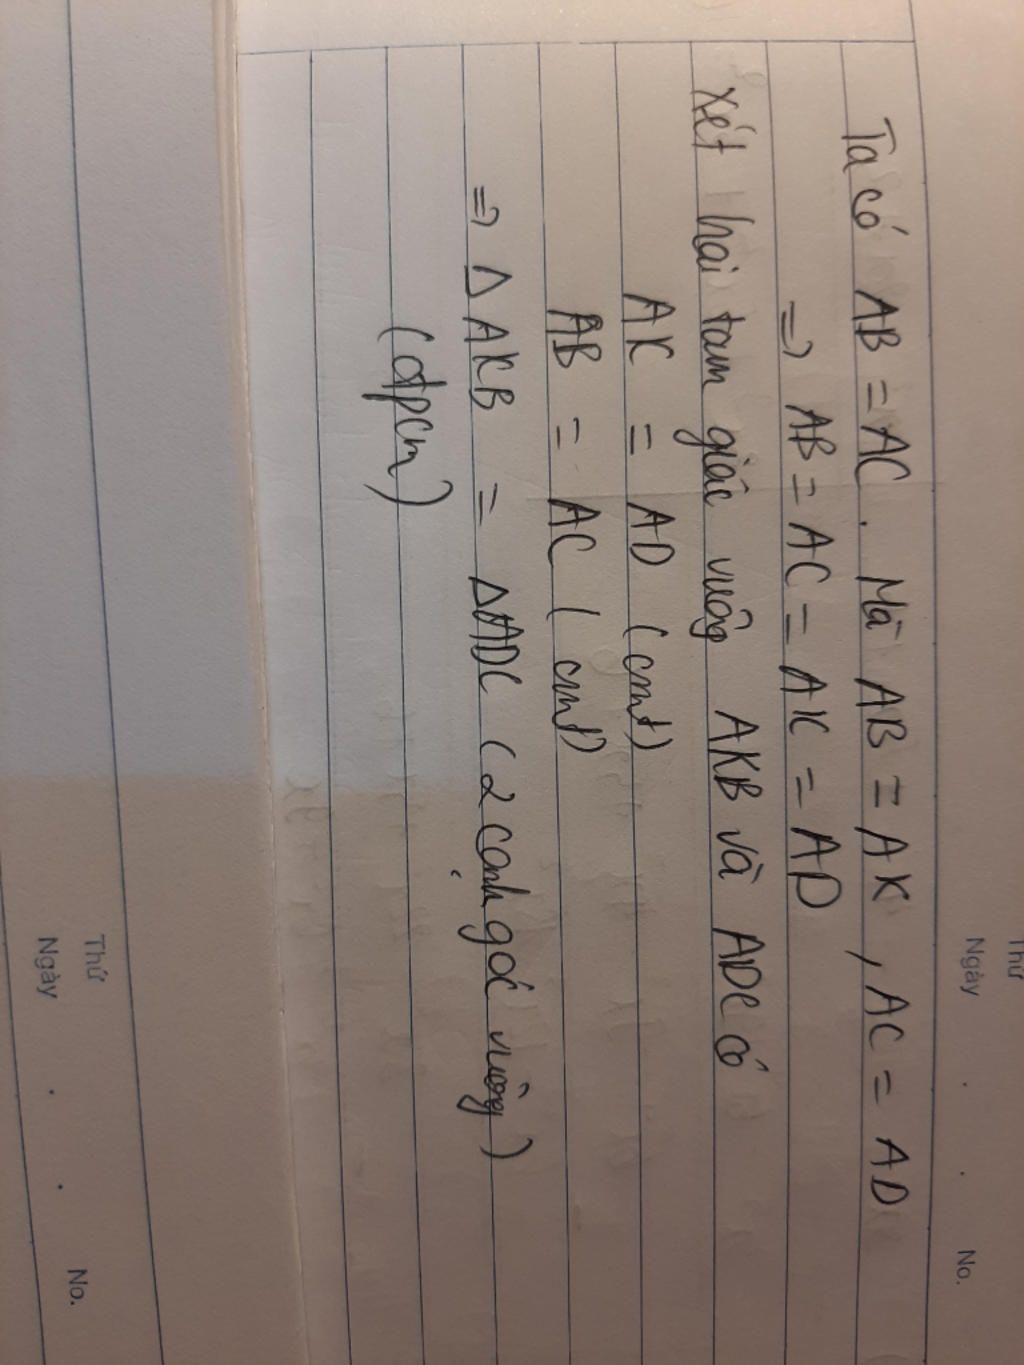 Thứ
Ngày . . No.
Ta có AB = AC. Mà AB = AK, AC = AD
=> AB = AC = AK = AD
xét hai tam giác vuông AKB và ADC có
AK = AD (cmt)
AB = AC (cmt)
=> Δ AKB = ΔADC (2 cạnh góc vuông)
(đpcm)
Thứ
Ngày . . No.